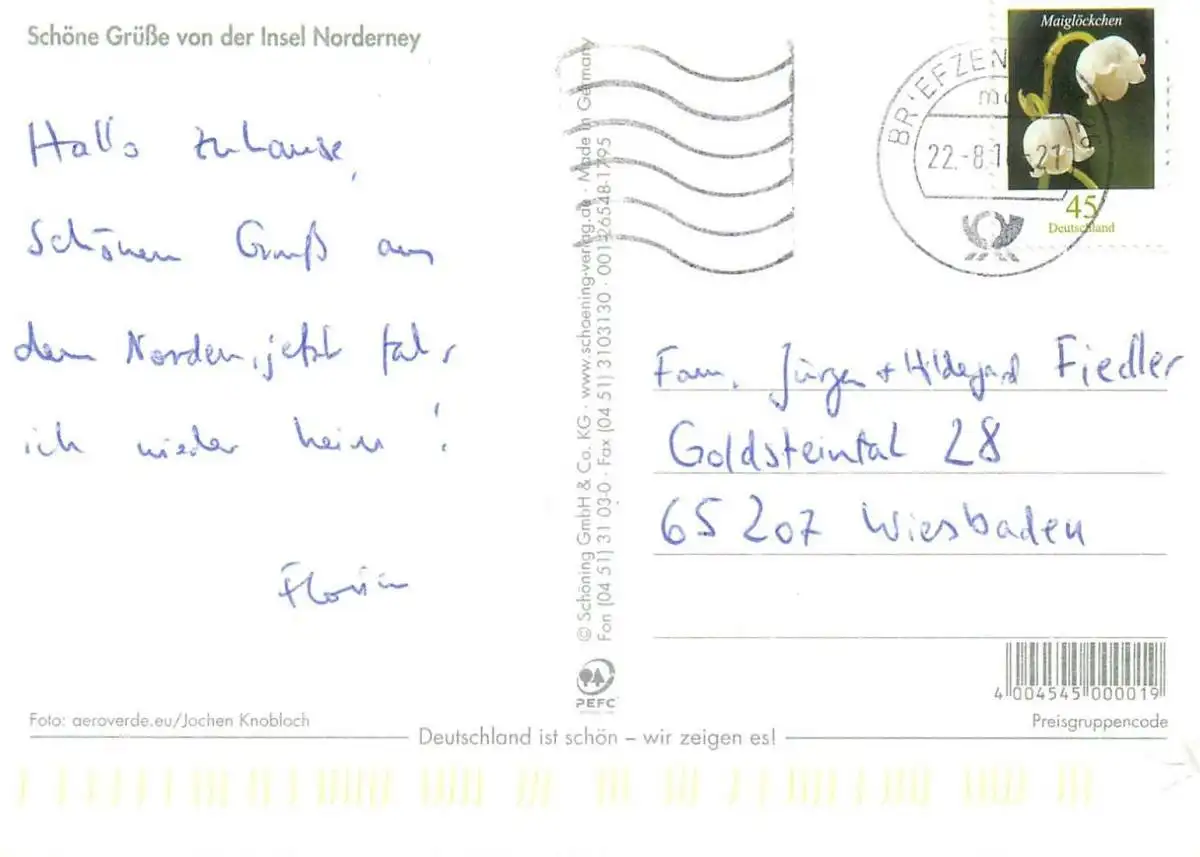 Schöne Grüße von der Insel Norderney
Hallo zuhause,
Schönen Gruß aus
dem Norden, jetzt fahr
ich wieder heim!
Florian
Foto: aeroverde.eu/Jochen Knobloch
© Schöning GmbH & Co. KG · www.schoening-verlag.de · Made in Germany
Fon (04 51) 31 03-0 · Fax (04 51) 3103130 · 001-26548-1795
PEFC
Maiglöckchen
45
Deutschland
22.-8.
Fam. Jürgen + Hildegard Fiedler
Goldsteintal 28
65207 Wiesbaden
4 004545 000019
Preisgruppencode
Deutschland ist schön – wir zeigen es!